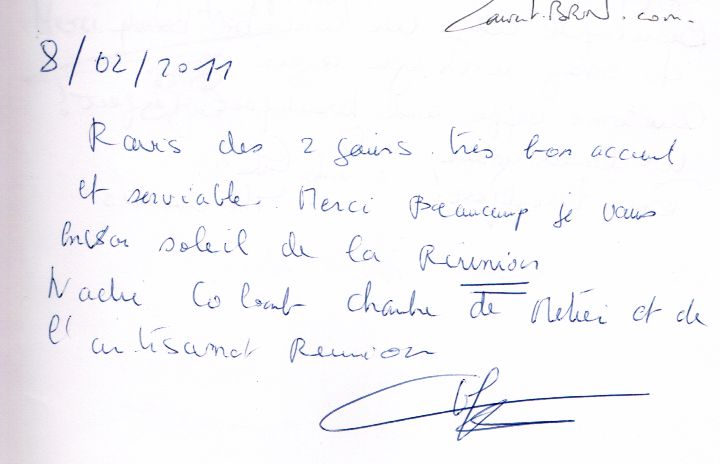 Laurent.BRUN.com.
8/02/2011
Ravis des 2 jours. très bon accueil
et serviable. Merci Beaucoup je vous
soleil de la Réunion
chambre de Métier et de
l'artisanat Reunion